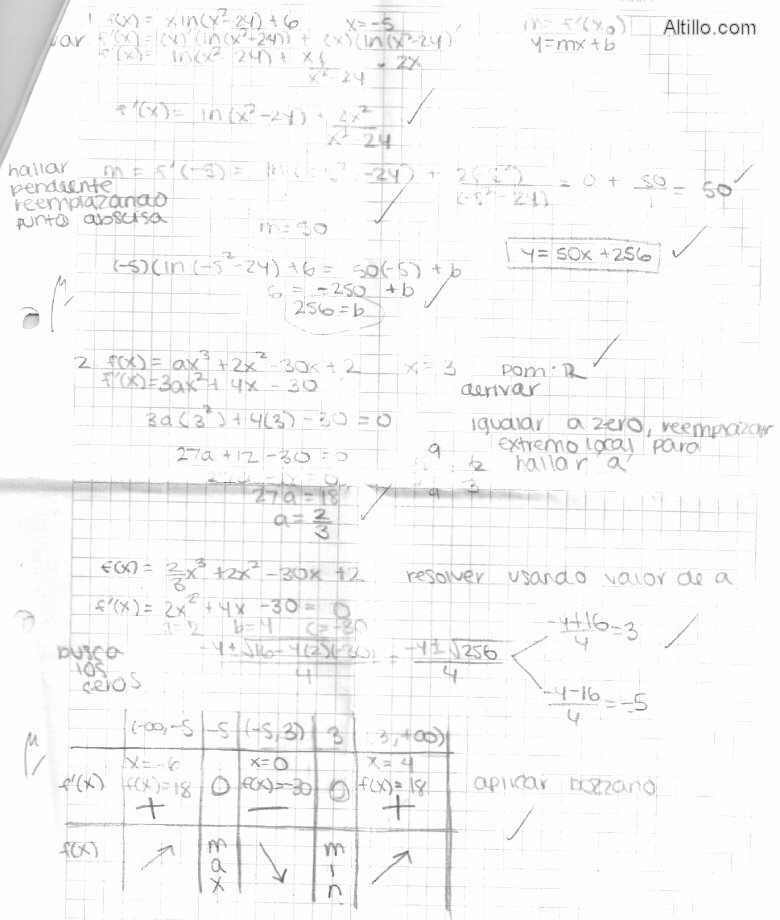 Altillo.com
1 f(x) = x ln(x²-24)+6 x=-5 m = f'(x₀)
f'(x) = (x)'(ln(x²-24)) + (x)(ln(x²-24))' y=mx+b
f'(x) = ln(x²-24) + x 1/(x²-24) · 2x
f'(x) = ln(x²-24) + 2x²/(x²-24)
hallar
pendiente
reemplazando
punto abscisa
m = f'(-5) = -24) + = 0 + 50/1 = 50
m=50
y = 50x + 256
(-5)(ln(-5²-24)+6 = 50(-5) + b
6 = -250 + b
256 = b
2 f(x) = ax³ + 2x² - 30x + 2 x = 3 Dom: R
f'(x) = 3ax² + 4x - 30 derivar
3a(3²) + 4(3) - 30 = 0 igualar a zero, reemplazar
extremo local para
27a + 12 - 30 = 0 hallar 'a'
27a = 18
a = 2/3
f(x) = 2/3x³ + 2x² - 30x + 2 resolver usando valor de a
f'(x) = 2x² + 4x - 30 = 0
a=2 b=4 c=-30
busca
los
ceros
(-4±√(16-4(2)(-30)))/4 = (-4±√256)/4
(-4+16)/4 = 3
(-4-16)/4 = -5
(-∞,-5 -5 (-5,3) 3 3,+∞)
x=-6 x=0 x=4
f'(x) f(x)=18 0 f(x)=-30 0 f(x)=18 aplicar bolzano
+ - +
f(x) ↗ max ↘ min ↗